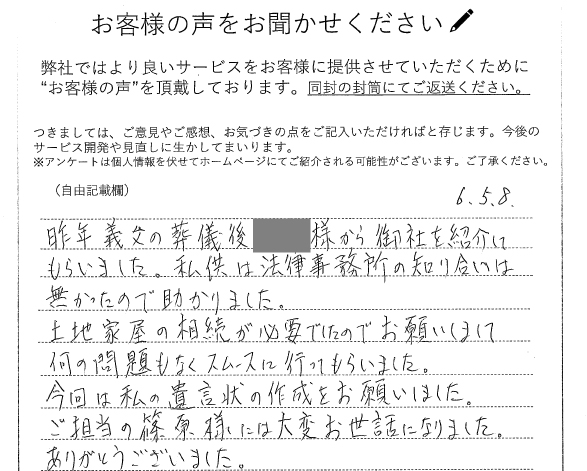 お客様の声をお聞かせください
弊社ではより良いサービスをお客様に提供させていただくために
“お客様の声”を頂戴しております。同封の封筒にてご返送ください。
つきましては、ご意見やご感想、お気づきの点をご記入いただければと存じます。今後の
サービス開発や見直しに生かしてまいります。
※アンケートは個人情報を伏せてホームページにてご紹介される可能性がございます。ご了承ください。
（自由記載欄）
6.5.8.
昨年義父の葬儀後 様から御社を紹介して
もらいました。私供は法律事務所の知り合いは
無かったので助かりました。
土地家屋の相続が必要でしたのでお願いしまして
何の問題もなくスムースに行ってもらいました。
今回は私の遺言状の作成をお願いしました。
ご担当の篠原様には大変お世話になりました。
ありがとうございました。